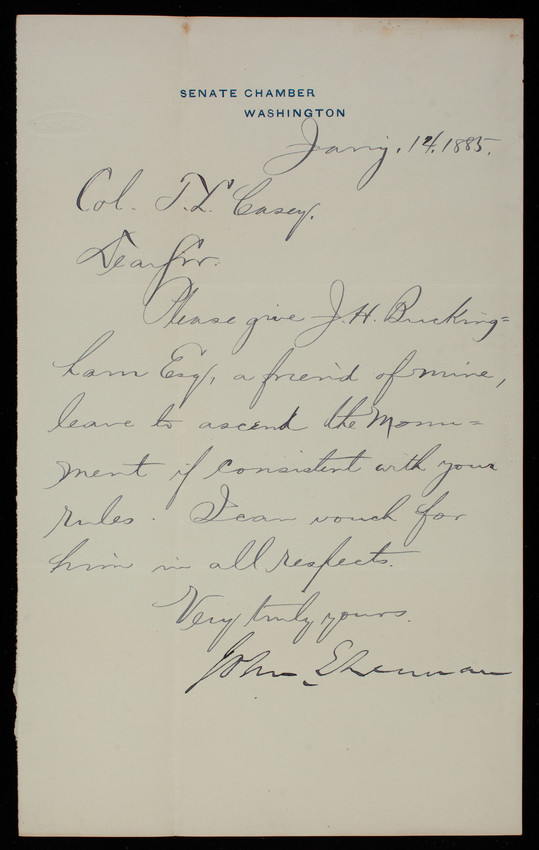 SENATE CHAMBER
WASHINGTON
Jan'y. 14. 1885.
Col. T. L. Casey.
Dear Sir.
Please give J. H. Bucking=
ham Esq, a friend of mine,
leave to ascend the Monu=
ment if consistent with your
rules. I can vouch for
him in all respects.
Very truly yours.
John Sherman